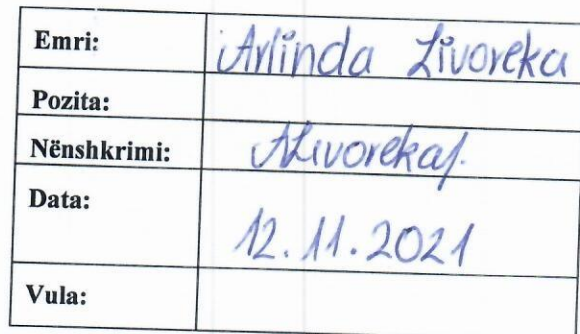 Emri: Arlinda Livoreka
Pozita:
Nënshkrimi: ALivoreka
Data: 12.11.2021
Vula: